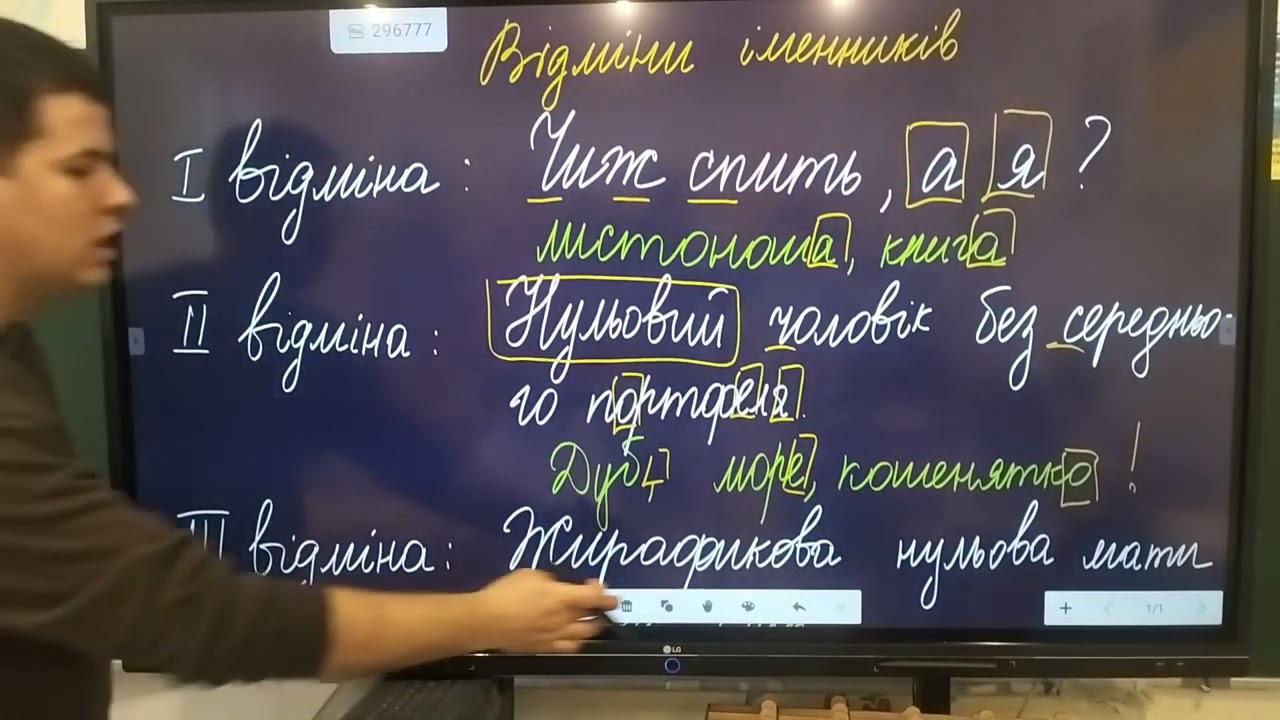 296777
Відміни іменників
I відміна: Чиж спить, а я?
листоноша, книга
II відміна: Нульовий чоловік без середньо-
го портфеля.
Дуб, море, кошенятко!
III відміна: Жирафикова нульова мати
1/1
LG